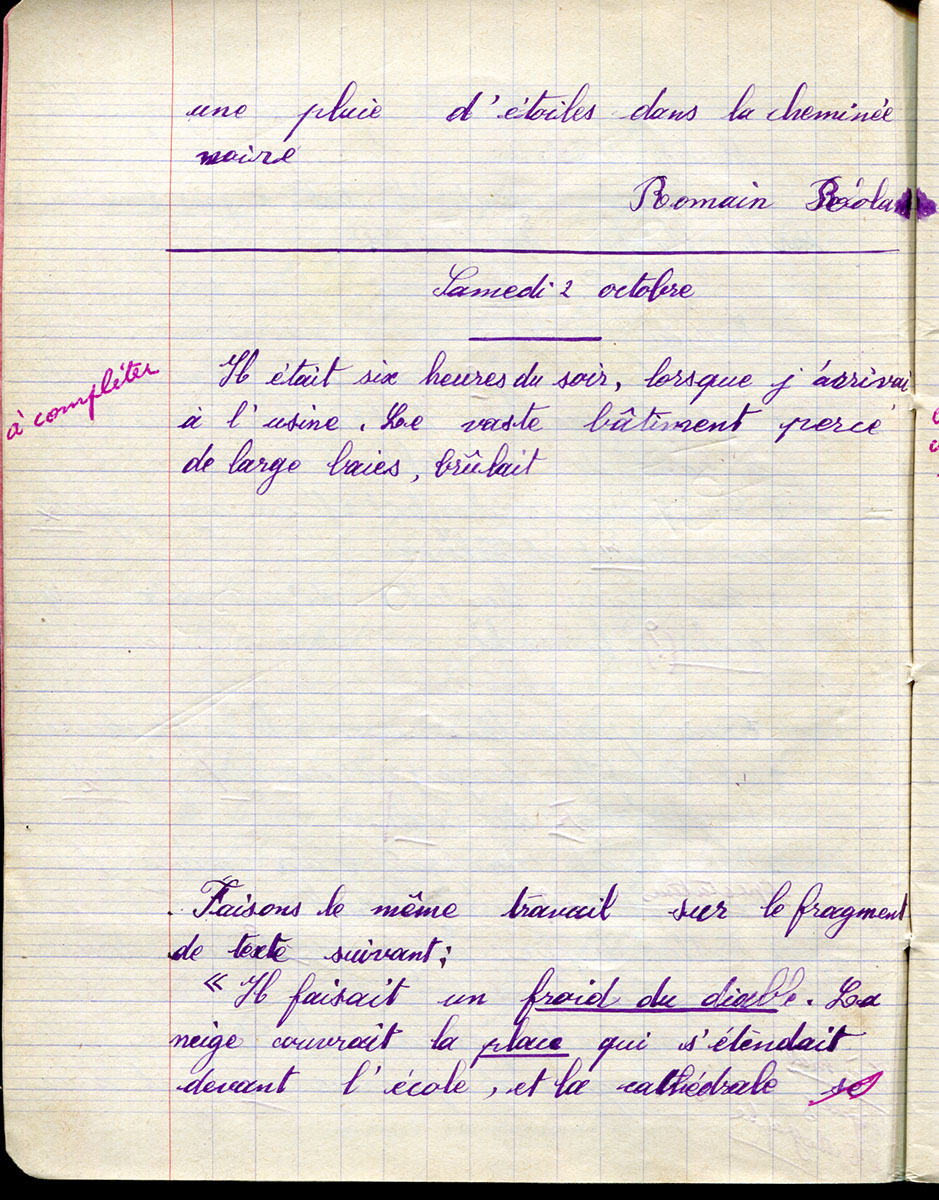 une pluie d'étoiles dans la cheminée
noire
Romain
Samedi 2 octobre
à compléter
Il était six heures du soir, lorsque j'arrivai
à l'usine. Le vaste bâtiment percé
de large baies, brûlait
Faisons le même travail sur le fragment
de texte suivant;
« Il faisait un froid du diable. La
neige couvrait la place qui s'étendait
devant l'école, et la cathédrale se